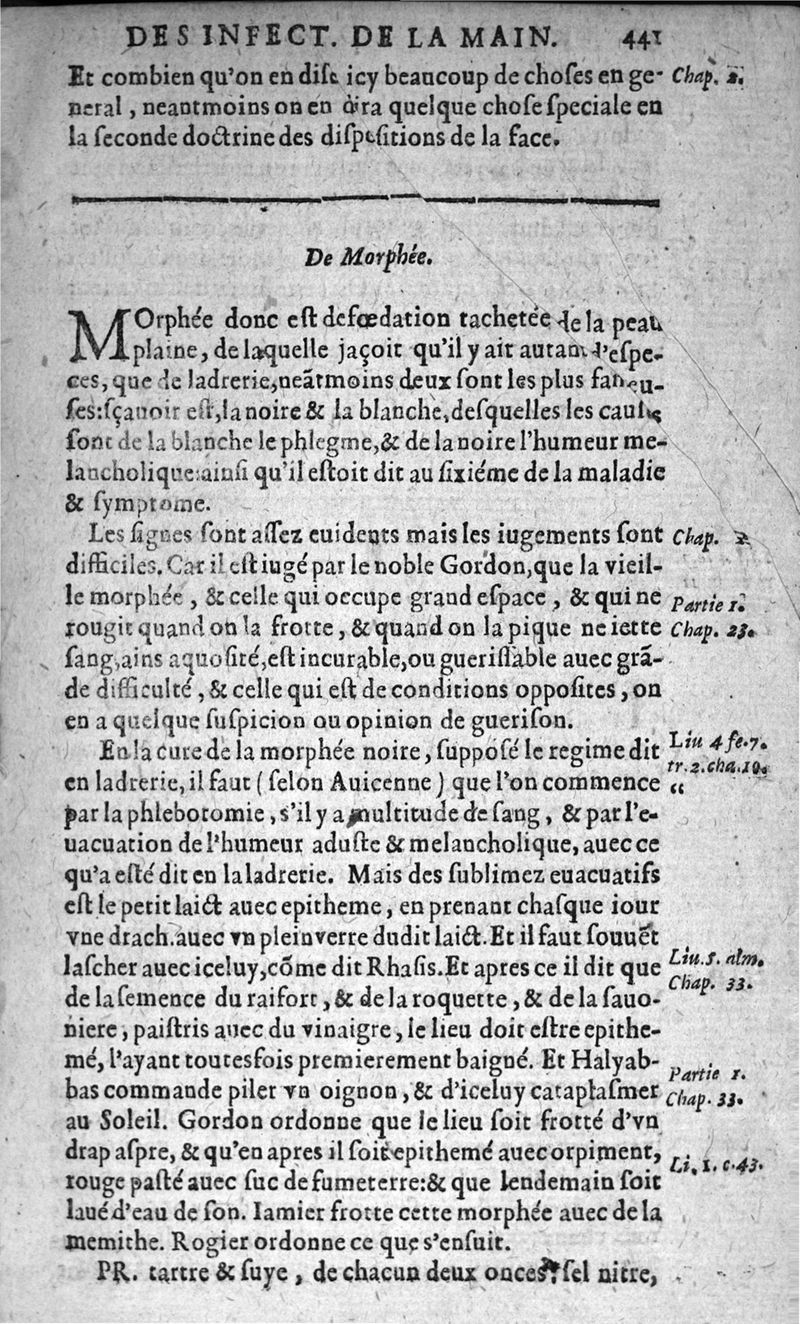 DES INFECT. DE LA MAIN. 441
Et combien qu'on en dise icy beaucoup de choſes en ge- Chap. 2.
neral, neantmoins on en dira quelque choſe ſpeciale en
la ſeconde doctrine des diſpoſitions de la face.
De Morphée.
MOrphée donc eſt defœdation tachetée de la peau
plaine, de laquelle jaçoit qu'il y ait autant d'eſpe-
ces, que de ladrerie, neãtmoins deux ſont les plus fameu-
ſes: ſçauoir eſt, la noire & la blanche, deſquelles les cauſes
ſont de la blanche le phlegme, & de la noire l'humeur me-
lancholique: ainſi qu'il eſtoit dit au ſixiéme de la maladie
& ſymptome.
Les ſignes ſont aſſez euidents mais les iugements ſont Chap. 2.
difficiles. Car il eſt iugé par le noble Gordon, que la vieil-
le morphée, & celle qui occupe grand eſpace, & qui ne Partie 1.
rougit quand on la frotte, & quand on la pique ne iette Chap. 23.
ſang, ains aquoſité, eſt incurable, ou gueriſſable auec grã-
de difficulté, & celle qui eſt de conditions oppoſites, on
en a quelque ſuſpicion ou opinion de gueriſon.
En la cure de la morphée noire, ſuppoſé le regime dit Liu 4 fe. 7.
tr. 2. cha. 10.
en ladrerie, il faut (ſelon Auicenne) que l'on commence “
par la phlebotomie, s'il y a multitude de ſang, & par l'e-
uacuation de l'humeur aduſte & melancholique, auec ce
qu'a eſté dit en la ladrerie. Mais des ſublimez euacuatifs
eſt le petit laict auec epitheme, en prenant chaſque iour
vne drach. auec vn plein verre dudit laict. Et il faut ſouuẽt
laſcher auec iceluy, cõme dit Rhaſis. Et apres ce il dit que Liu. 5. alm.
Chap. 33.
de la ſemence du raifort, & de la roquette, & de la ſauo-
niere, paiſtris auec du vinaigre, le lieu doit eſtre epithe-
mé, l'ayant toutesfois premierement baigné. Et Halyab- Partie 1.
bas commande piler vn oignon, & d'iceluy cataplaſmer Chap. 33.
au Soleil. Gordon ordonne que le lieu ſoit frotté d'vn
drap aſpre, & qu'en apres il ſoit epithemé auec orpiment, Li. 1. c. 43.
rouge paſté auec ſuc de fumeterre: & que lendemain ſoit
laué d'eau de ſon. Iamier frotte cette morphée auec de la
memithe. Rogier ordonne ce que s'enſuit.
PR. tartre & ſuye, de chacun deux onces, ſel nitre,